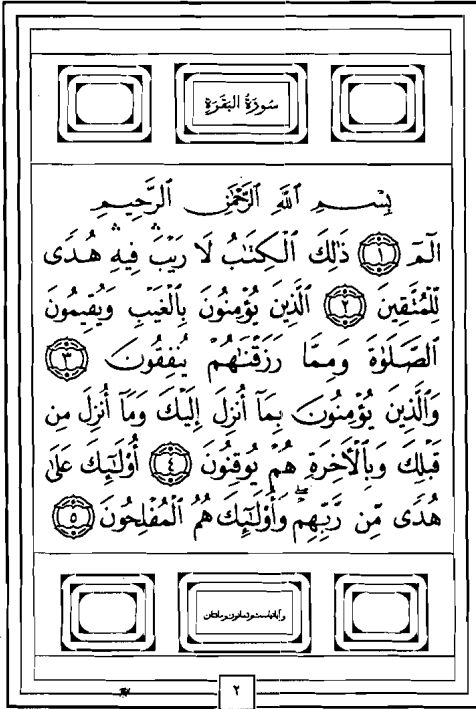 سُورَةُ البَقَرَةِ
بِسْمِ ٱللَّهِ ٱلرَّحْمَٰنِ ٱلرَّحِيمِ
الٓمٓ ١ ذَٰلِكَ ٱلْكِتَٰبُ لَا رَيْبَۛ فِيهِۛ هُدًى
لِّلْمُتَّقِينَ ٢ ٱلَّذِينَ يُؤْمِنُونَ بِٱلْغَيْبِ وَيُقِيمُونَ
ٱلصَّلَوٰةَ وَمِمَّا رَزَقْنَٰهُمْ يُنفِقُونَ ٣
وَٱلَّذِينَ يُؤْمِنُونَ بِمَآ أُنزِلَ إِلَيْكَ وَمَآ أُنزِلَ مِن
قَبْلِكَ وَبِٱلْأَخِرَةِ هُمْ يُوقِنُونَ ٤ أُو۟لَٰٓئِكَ عَلَىٰ
هُدًى مِّن رَّبِّهِمْۖ وَأُو۟لَٰٓئِكَ هُمُ ٱلْمُفْلِحُونَ ٥
وآياتها ست وثمانون ومائتان
٢